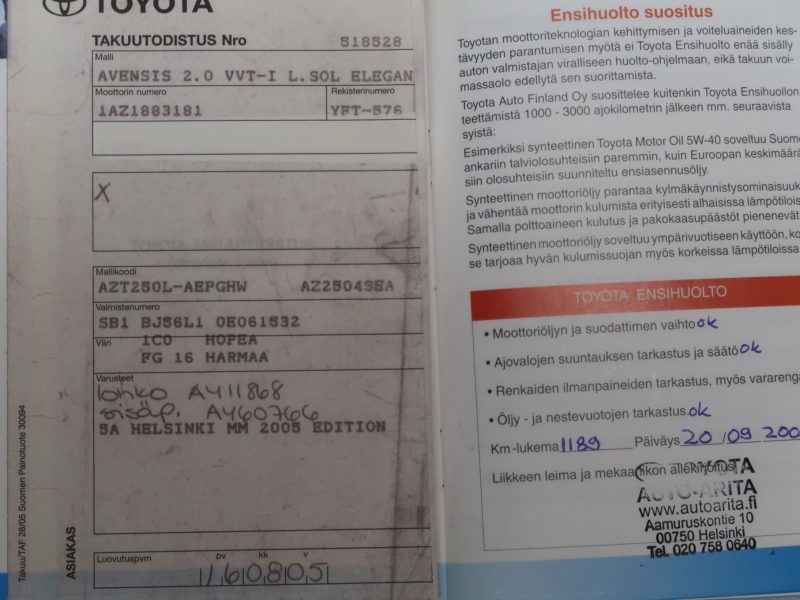 TOYOTA
TAKUUTODISTUS Nro 518528
Malli
AVENSIS 2.0 VVT-I L.SOL ELEGAN
Moottorin numero Rekisterinumero
1AZ1883181 YFT-576
X
Mallikoodi
AZT250L-AEPGHW AZ2504SEA
Valmistenumero
SB1 BJ56L1 0E061532
Väri 1C0 HOPEA
FG 16 HARMAA
Varusteet
lohko AY11868
sisäp. AY60766
5A HELSINKI MM 2005 EDITION
Luovutuspvm pv kk v
16 08 05
Takuu/TAF 28/05 Suomen Painotuote 30094
ASIAKAS
Ensihuolto suositus
Toyotan moottoriteknologian kehittymisen ja voiteluaineiden kes-
tävyyden parantumisen myötä ei Toyota Ensihuolto enää sisälly
auton valmistajan viralliseen huolto-ohjelmaan, eikä takuun voi-
massaolo edellytä sen suorittamista.
Toyota Auto Finland Oy suosittelee kuitenkin Toyota Ensihuollon
teettämistä 1000 - 3000 ajokilometrin jälkeen mm. seuraavista
syistä:
Esimerkiksi synteettinen Toyota Motor Oil 5W-40 soveltuu Suome
ankariin talviolosuhteisiin paremmin, kuin Euroopan keskimäärä
siin olosuhteisiin suunniteltu ensiasennusöljy.
Synteettinen moottoriöljy parantaa kylmäkäynnistysominaisuuk
ja vähentää moottorin kulumista erityisesti alhaisissa lämpötilois
Samalla polttoaineen kulutus ja pakokaasupäästöt pienenevät
Synteettinen moottoriöljy soveltuu ympärivuotiseen käyttöön, ko
se tarjoaa hyvän kulumissuojan myös korkeissa lämpötiloissa
TOYOTA ENSIHUOLTO
• Moottoriöljyn ja suodattimen vaihto ok
• Ajovalojen suuntauksen tarkastus ja säätö ok
• Renkaiden ilmanpaineiden tarkastus, myös vararenga
• Öljy - ja nestevuotojen tarkastus ok
Km-lukema 1189 Päiväys 20/09 200
Liikkeen leima ja mekaanikon allekirjoitus
TOYOTA
AUTO-ARITA
www.autoarita.fi
Aamuruskontie 10
00750 Helsinki
Tel. 020 758 0640